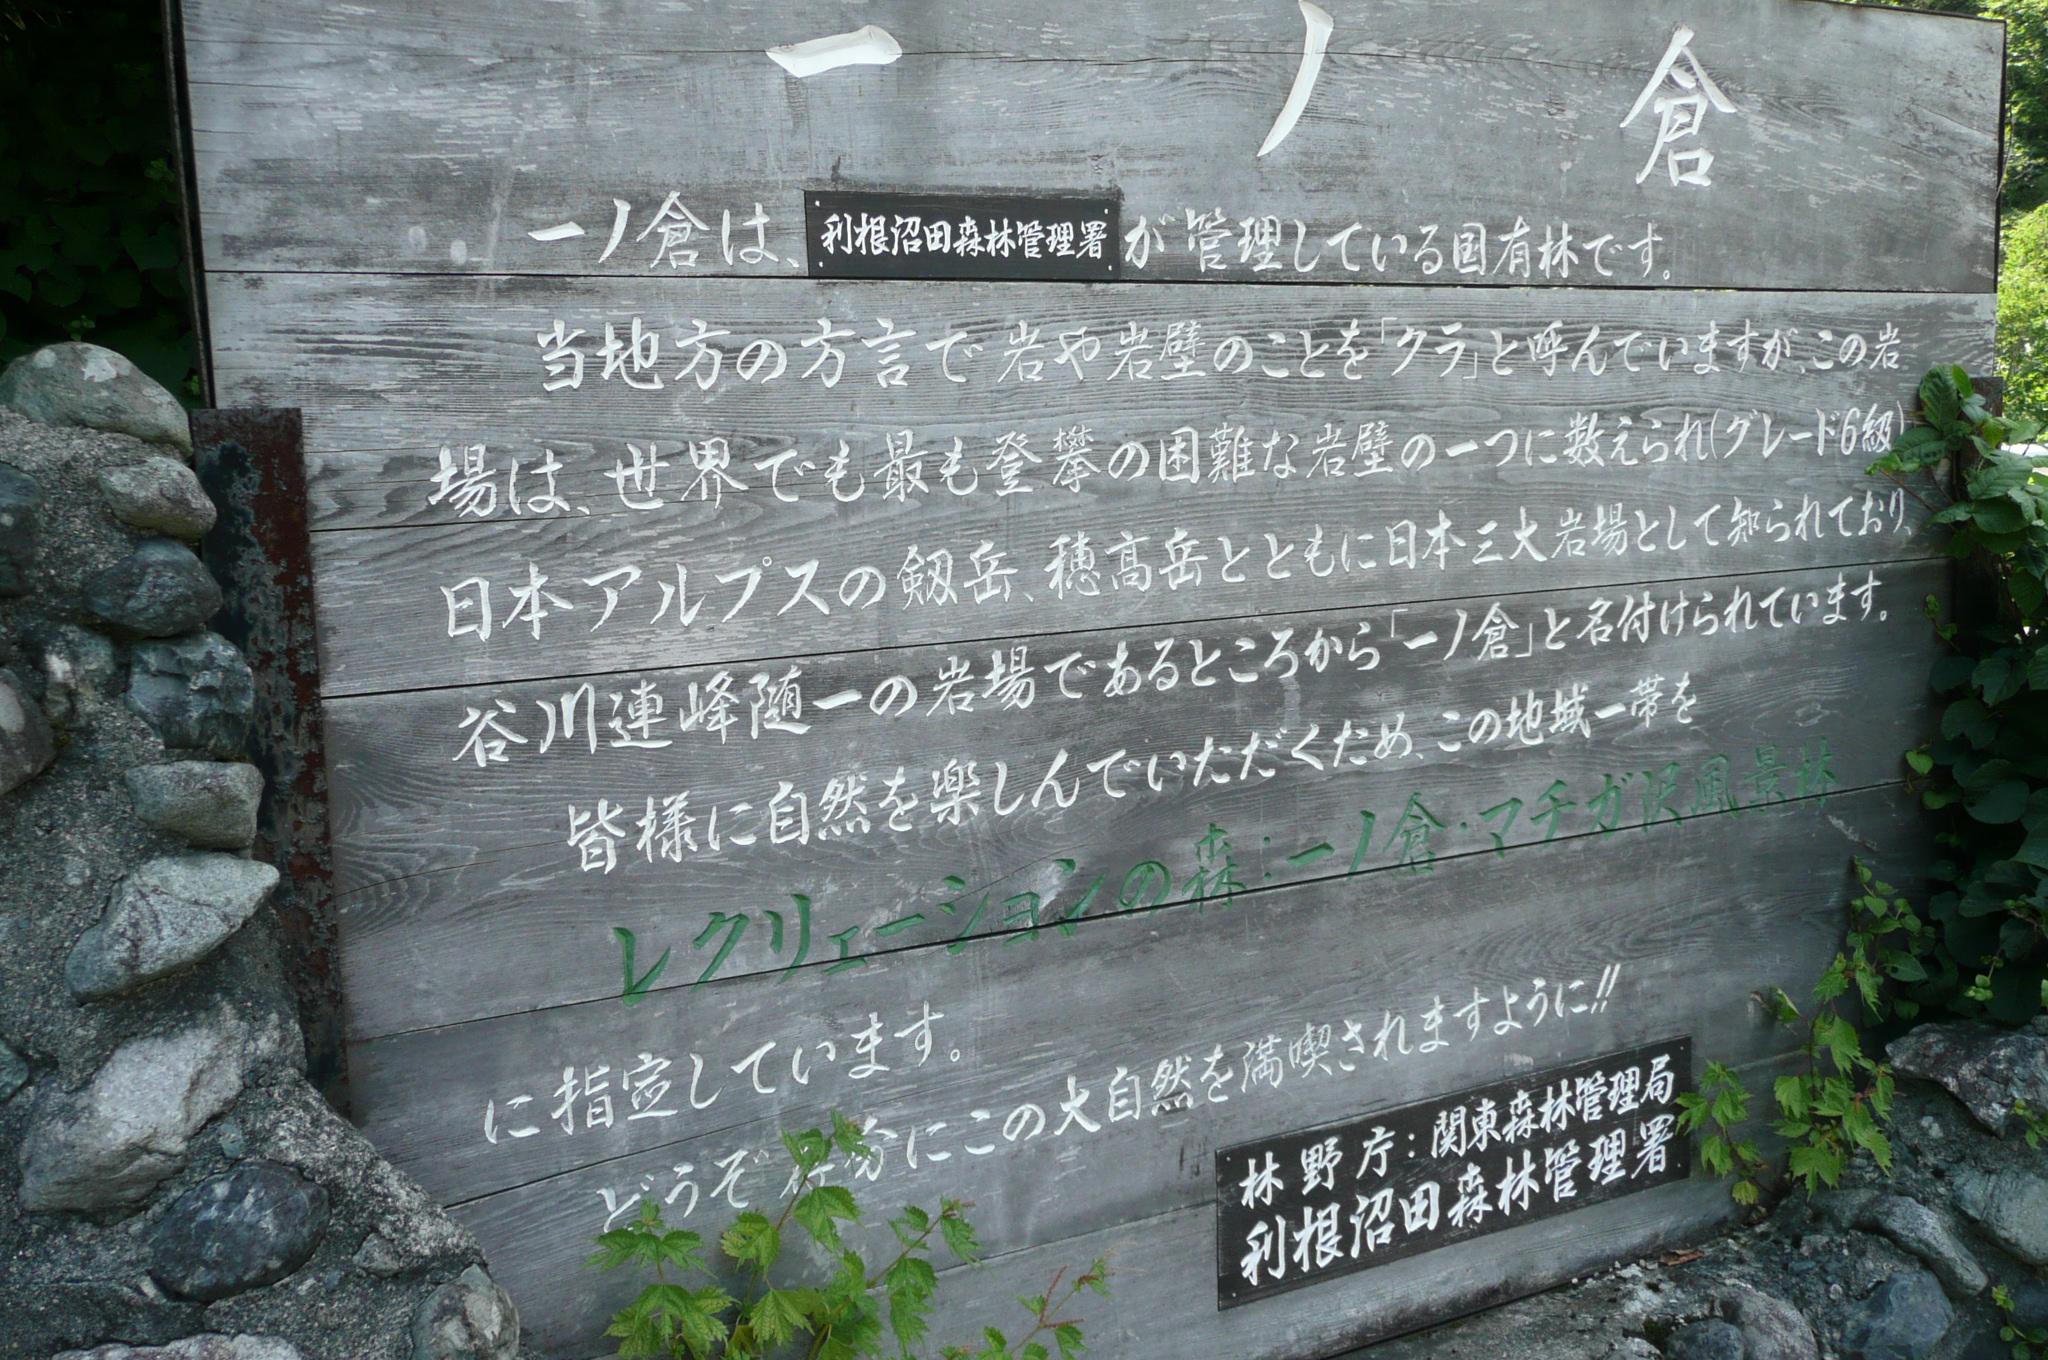 一ノ倉
一ノ倉は、利根沼田森林管理署が管理している国有林です。
当地方の方言で岩や岩壁のことを「クラ」と呼んでいますが、この岩
場は、世界でも最も登攀の困難な岩壁の一つに数えられ(グレード6級)
日本アルプスの剱岳、穂高岳とともに日本三大岩場として知られており、
谷川連峰随一の岩場であるところから「一ノ倉」と名付けられています。
皆様に自然を楽しんでいただくため、この地域一帯を
レクリェーションの森:一ノ倉・マチガ沢風景林
に指定しています。
どうぞ存分にこの大自然を満喫されますように!!
林野庁:関東森林管理局
利根沼田森林管理署